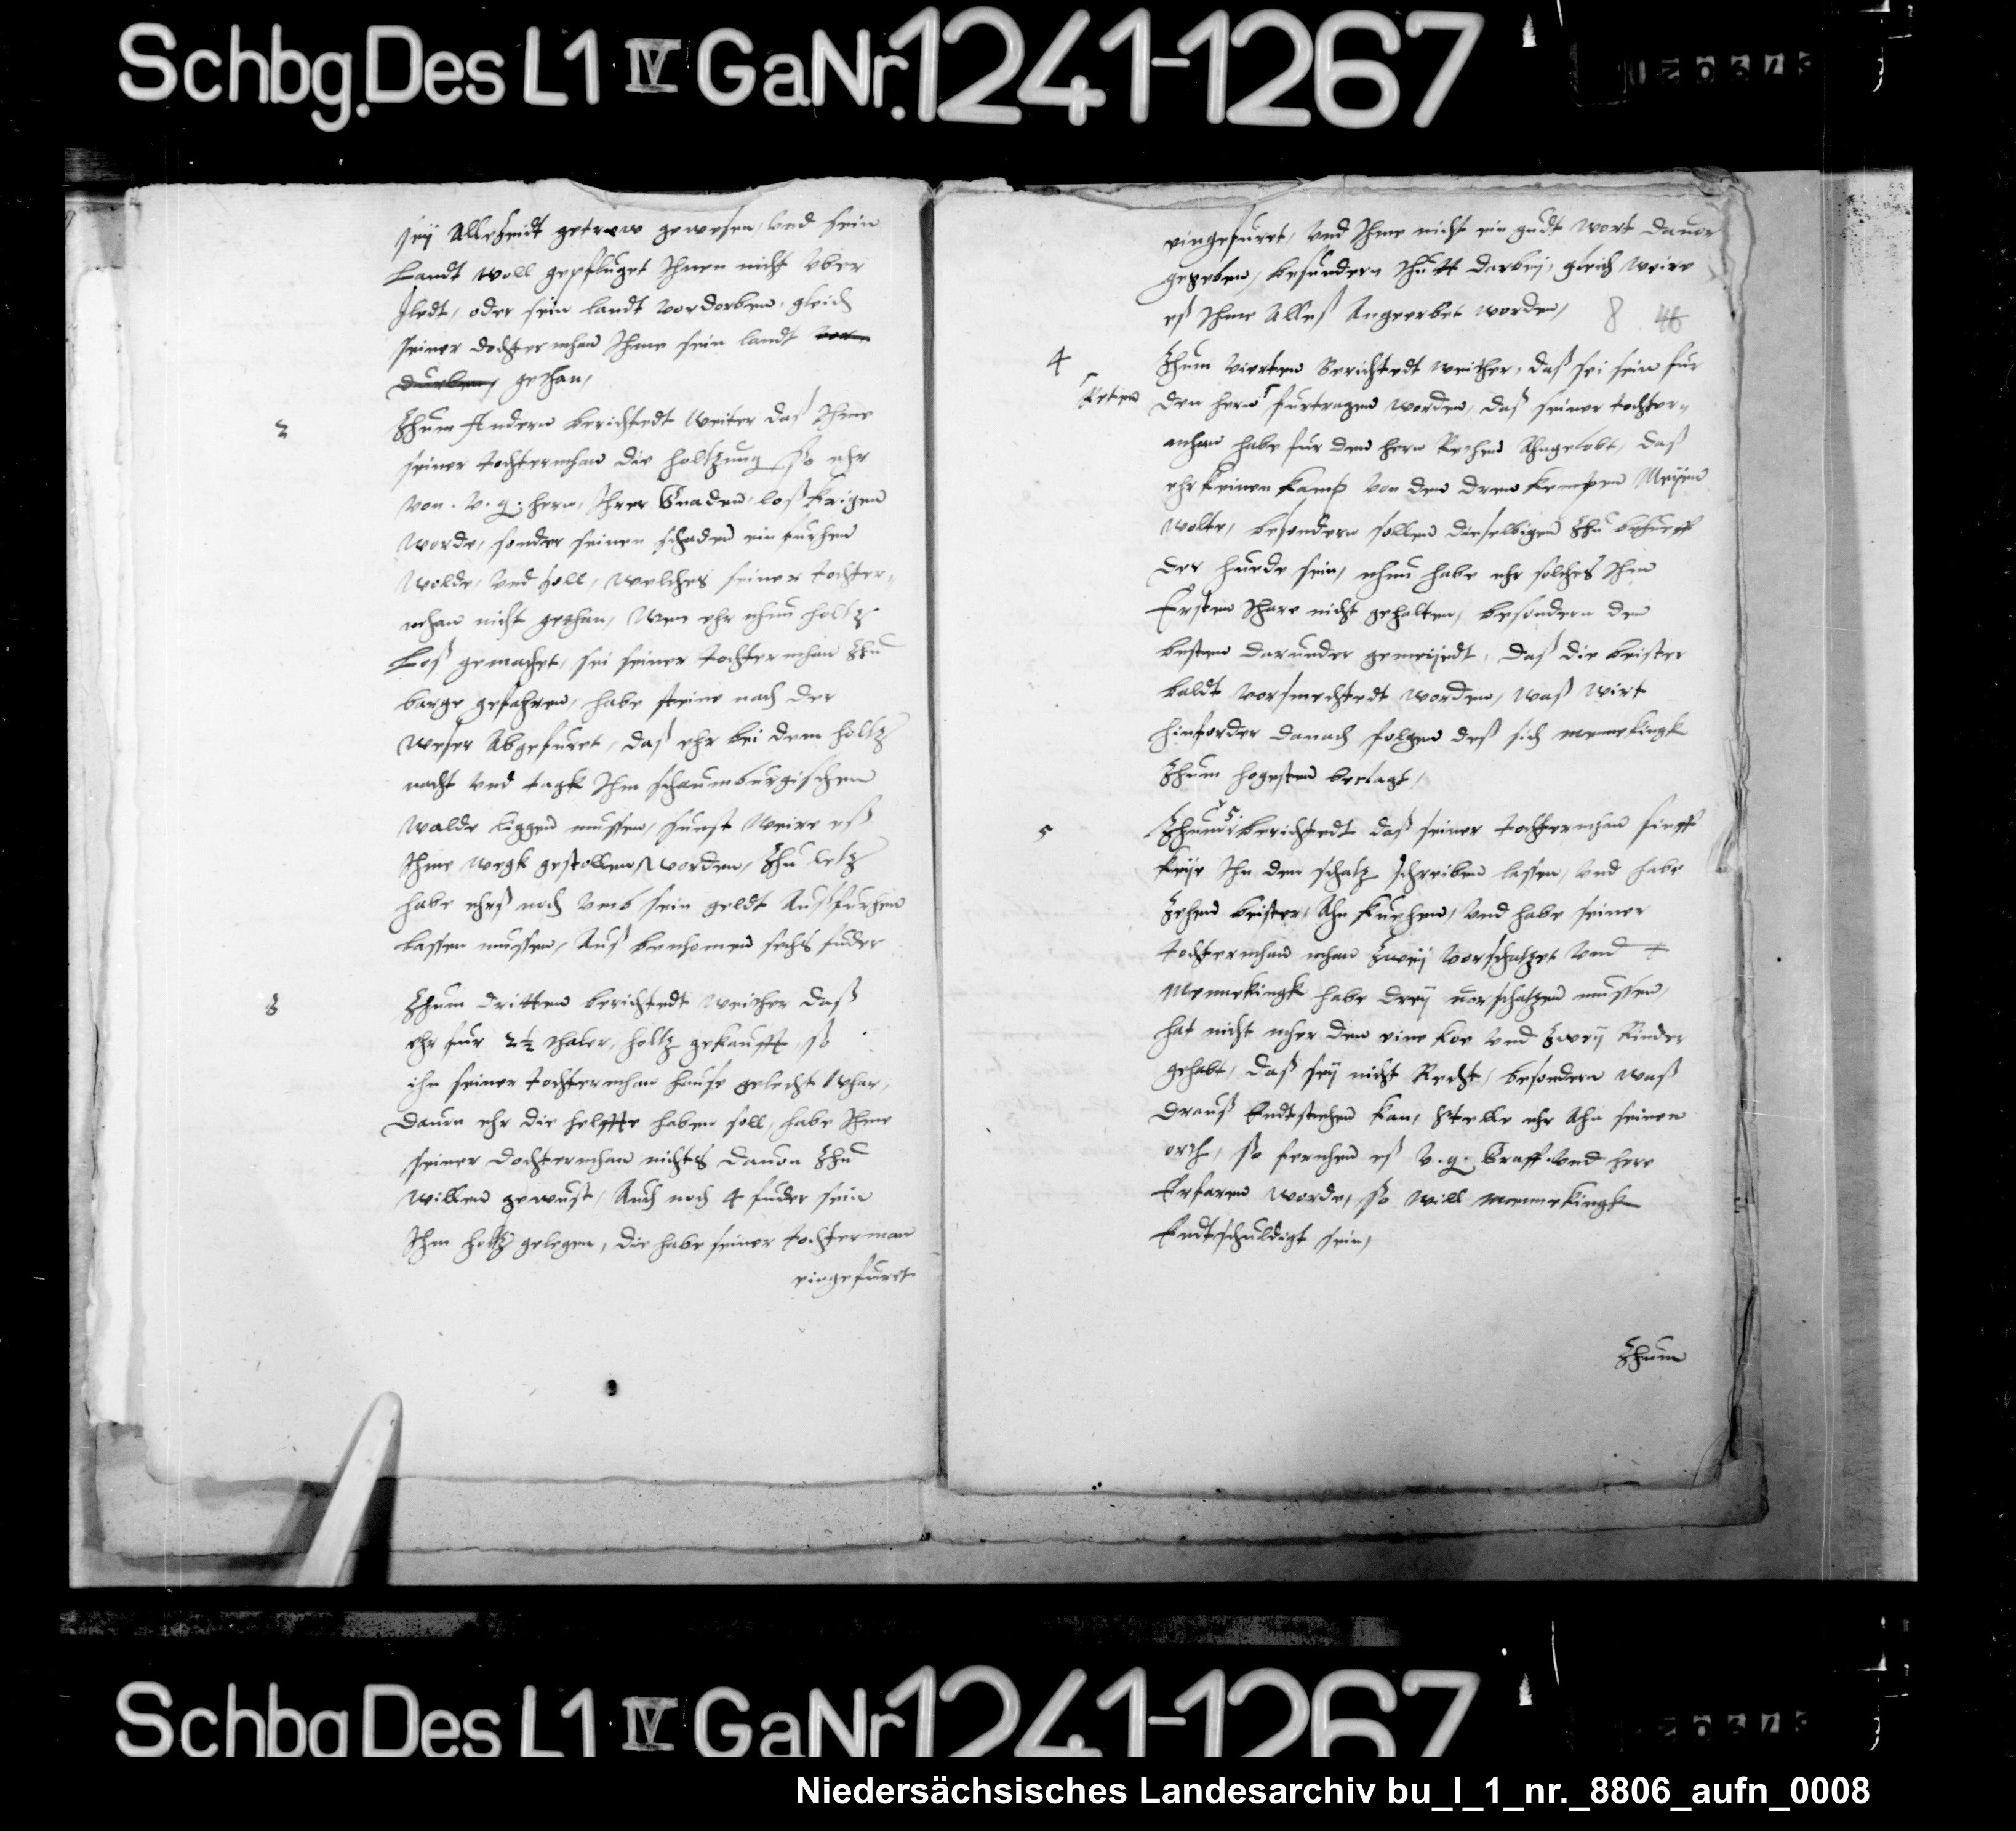 Schbg.Des L1 IV GaNr.1241-1267
sey Allezeidt getrew gewesen, Vnd sein
Landt woll gepfluget Ihnen nicht Vber
Iledt, oder sein landt vordorben, gleich
seiner dochterman Ihme sein landt vor
durben, gethan,
2
Zhum Andern berichtedt Weiter daß Ihme
seiner tochterman die holtzung so ehr
von V. g. hern, Ihrer Gnaden loß krigen
worde, sonder seinen schaden ein furhen
Wolde, Vnd soll, welches seiner tochter,,
man nicht gethan, Wen ehr nhun holtz
Loß gemachet, sei seiner tochterman Zhu
barge gefahren, habe steine nach der
Weser Abgefuret, daß ehr bei dem holtz
nacht vnd tagk Ihm schaumburgischen
Walde liggen mussen, sunst Weire eß
Ihme wegk gestollen worden, Zhu letz
habe ehrß noch Vmb sein geldt Außfurhen
lassen mussen, Auß benhomen sechs fuder
3
Zhum dritten berichtedt weither daß
ehr fur 2½ thaler, holtz gekaufft, so
ihn seiner tochterman hause gelecht Whar,
dauon ehr die helffte haben soll, habe Ihme
seiner dochterman nichts dauon Zhu
willen gewust, Auch noch 4 fuder sein
Ihm holtz gelegen, die habe seiner tochterman
eingefuret
eingefuret, Vnd Ihme nicht ein gudt wort dauor
gegeben, besundern darbey, gleich weire
eß Ihme Alles Angeerbet worden,
8 46
4
Zhum vierten berichtedt weither, daß sei sein fur
den hern furtragen worden, daß seiner tochter,,
man habe fur den hern Angelobt, daß
ehr keinen kamp von den drew kempen Meyen
wolte, besondern sollen dieselbigen Zhu behueff
der huede sein, nhun habe ehr solches Ihm
Ersten Ihare nicht gehalten, besondern den
besten darunder gemeyedt, daß die beister
baldt vorsmechtedt worden, waß wirt
hinforder danach folgen deß sich mennekingk
Zhum hogesten beclagt,
5
Zhum 5. berichtedt daß seiner tochterman funff
keye Ihn den schatz schreiben lassen, Vnd habe
Zehen beister, Ahn kuehen, Vnd habe seiner
tochterman man Zwey Vorschatzet Vnd
Mennekingk habe drey vorschatzen mussen,
hat nicht mher den eine koe Vnd Zwey Rinder
gehabt, daß sey nicht Recht, besondern waß
drauß Endtstehen kan, Stelle ehr Ahn seinen
orth, so fernhen eß V. g. Graff Vnd here
Erfaren worde, so will mennekingk
Endtschuldigt sein,
Zhum
Schbg Des L1 IV GaNr 1241-1267
Niedersächsisches Landesarchiv bu_l_1_nr._8806_aufn_0008